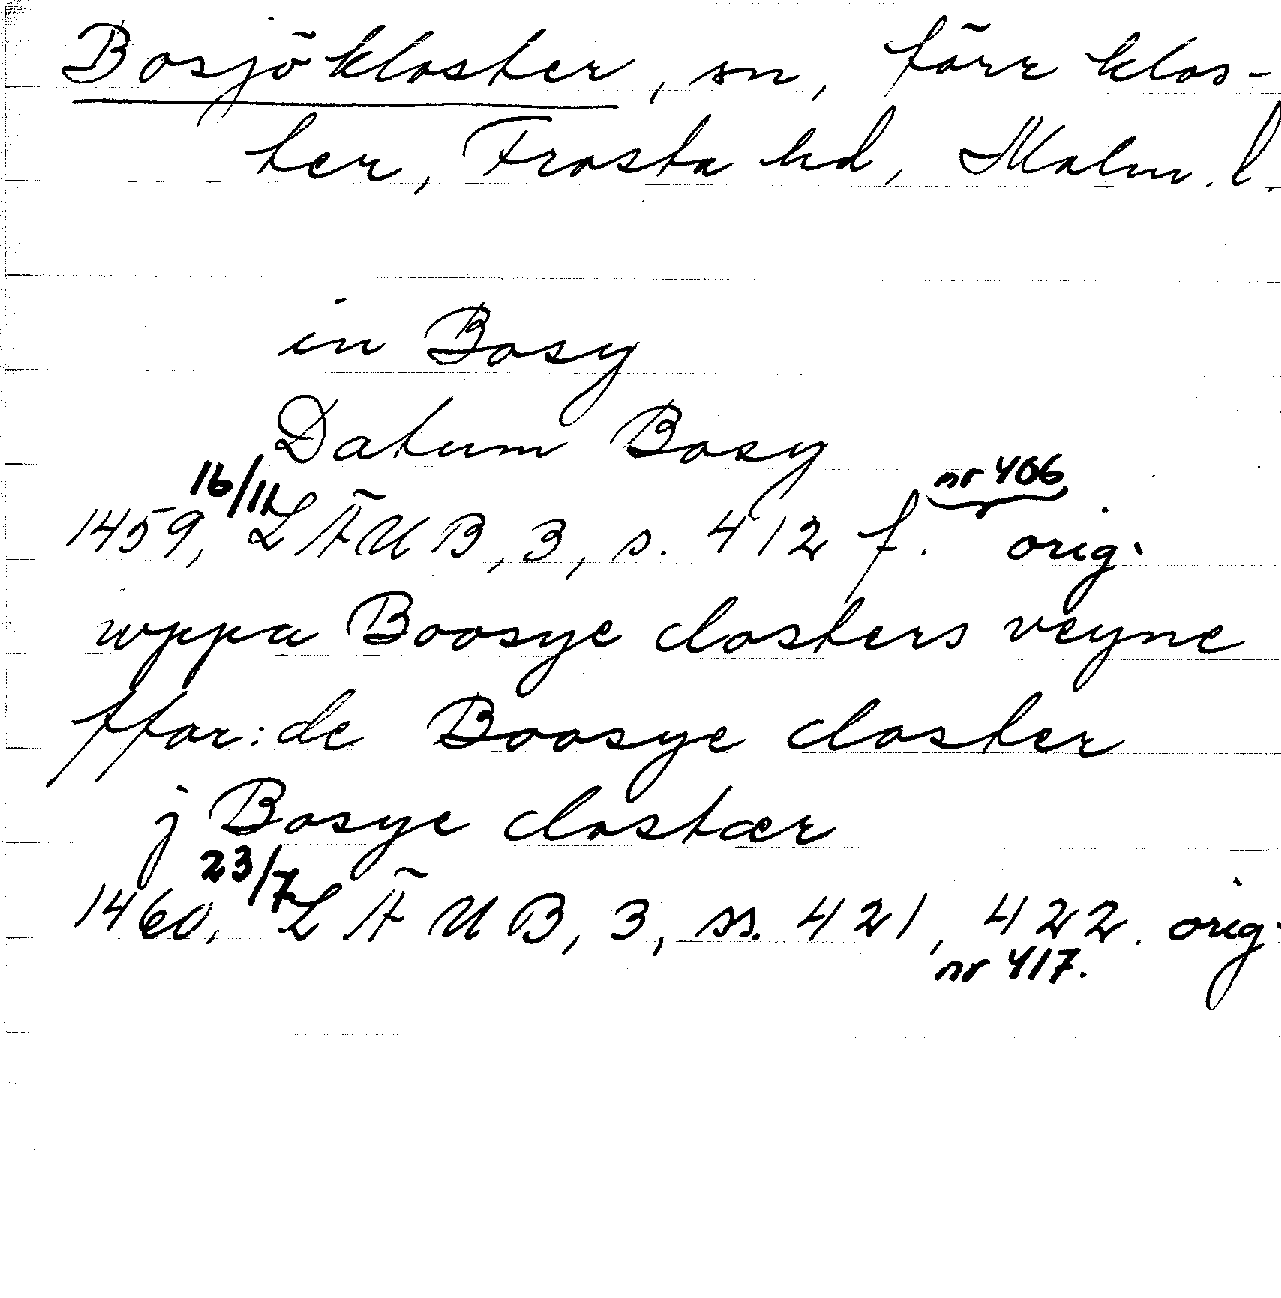 Bosjökloster, sn, förr klos-
ter, Frosta hd, Malm. l.
in Bosy
Datum Bosy
1459, 16/11 LÄUB, 3, s. 412 f. nr 406 orig.
wppa Boosye closters veyne
ffor:de Boosye closter
j Bosye clostær
1460, 23/7 LÄUB, 3, ss. 421, 422. orig.
nr 417.